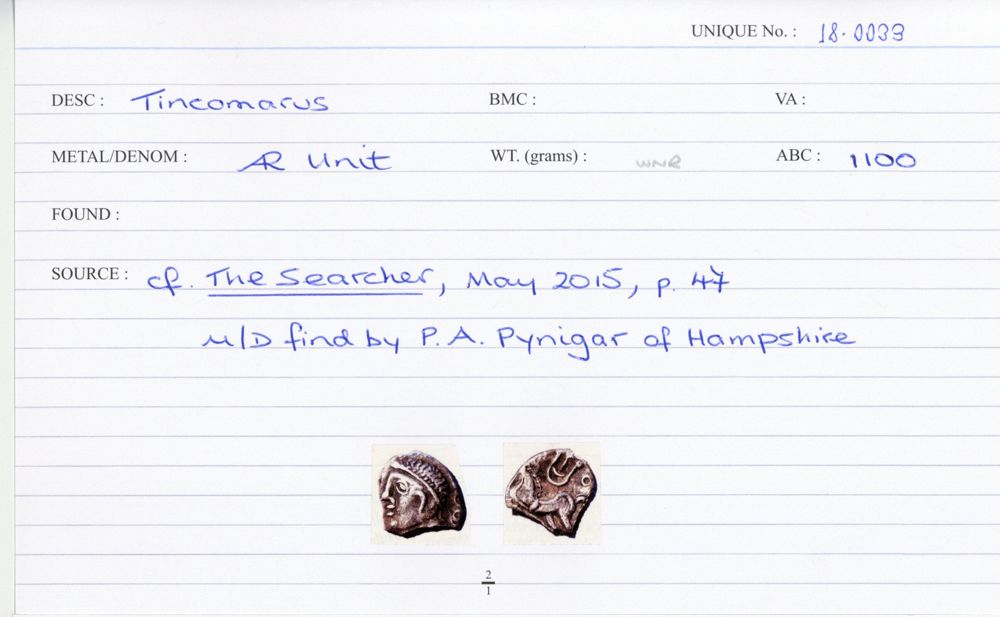 UNIQUE No. : 18-0033
DESC : Tincomarus BMC : VA :
METAL/DENOM : AR Unit WT. (grams) : WNR ABC : 1100
FOUND :
SOURCE : cf. The Searcher, May 2015, p. 47
M/D find by P. A. Pynigar of Hampshire
2
1